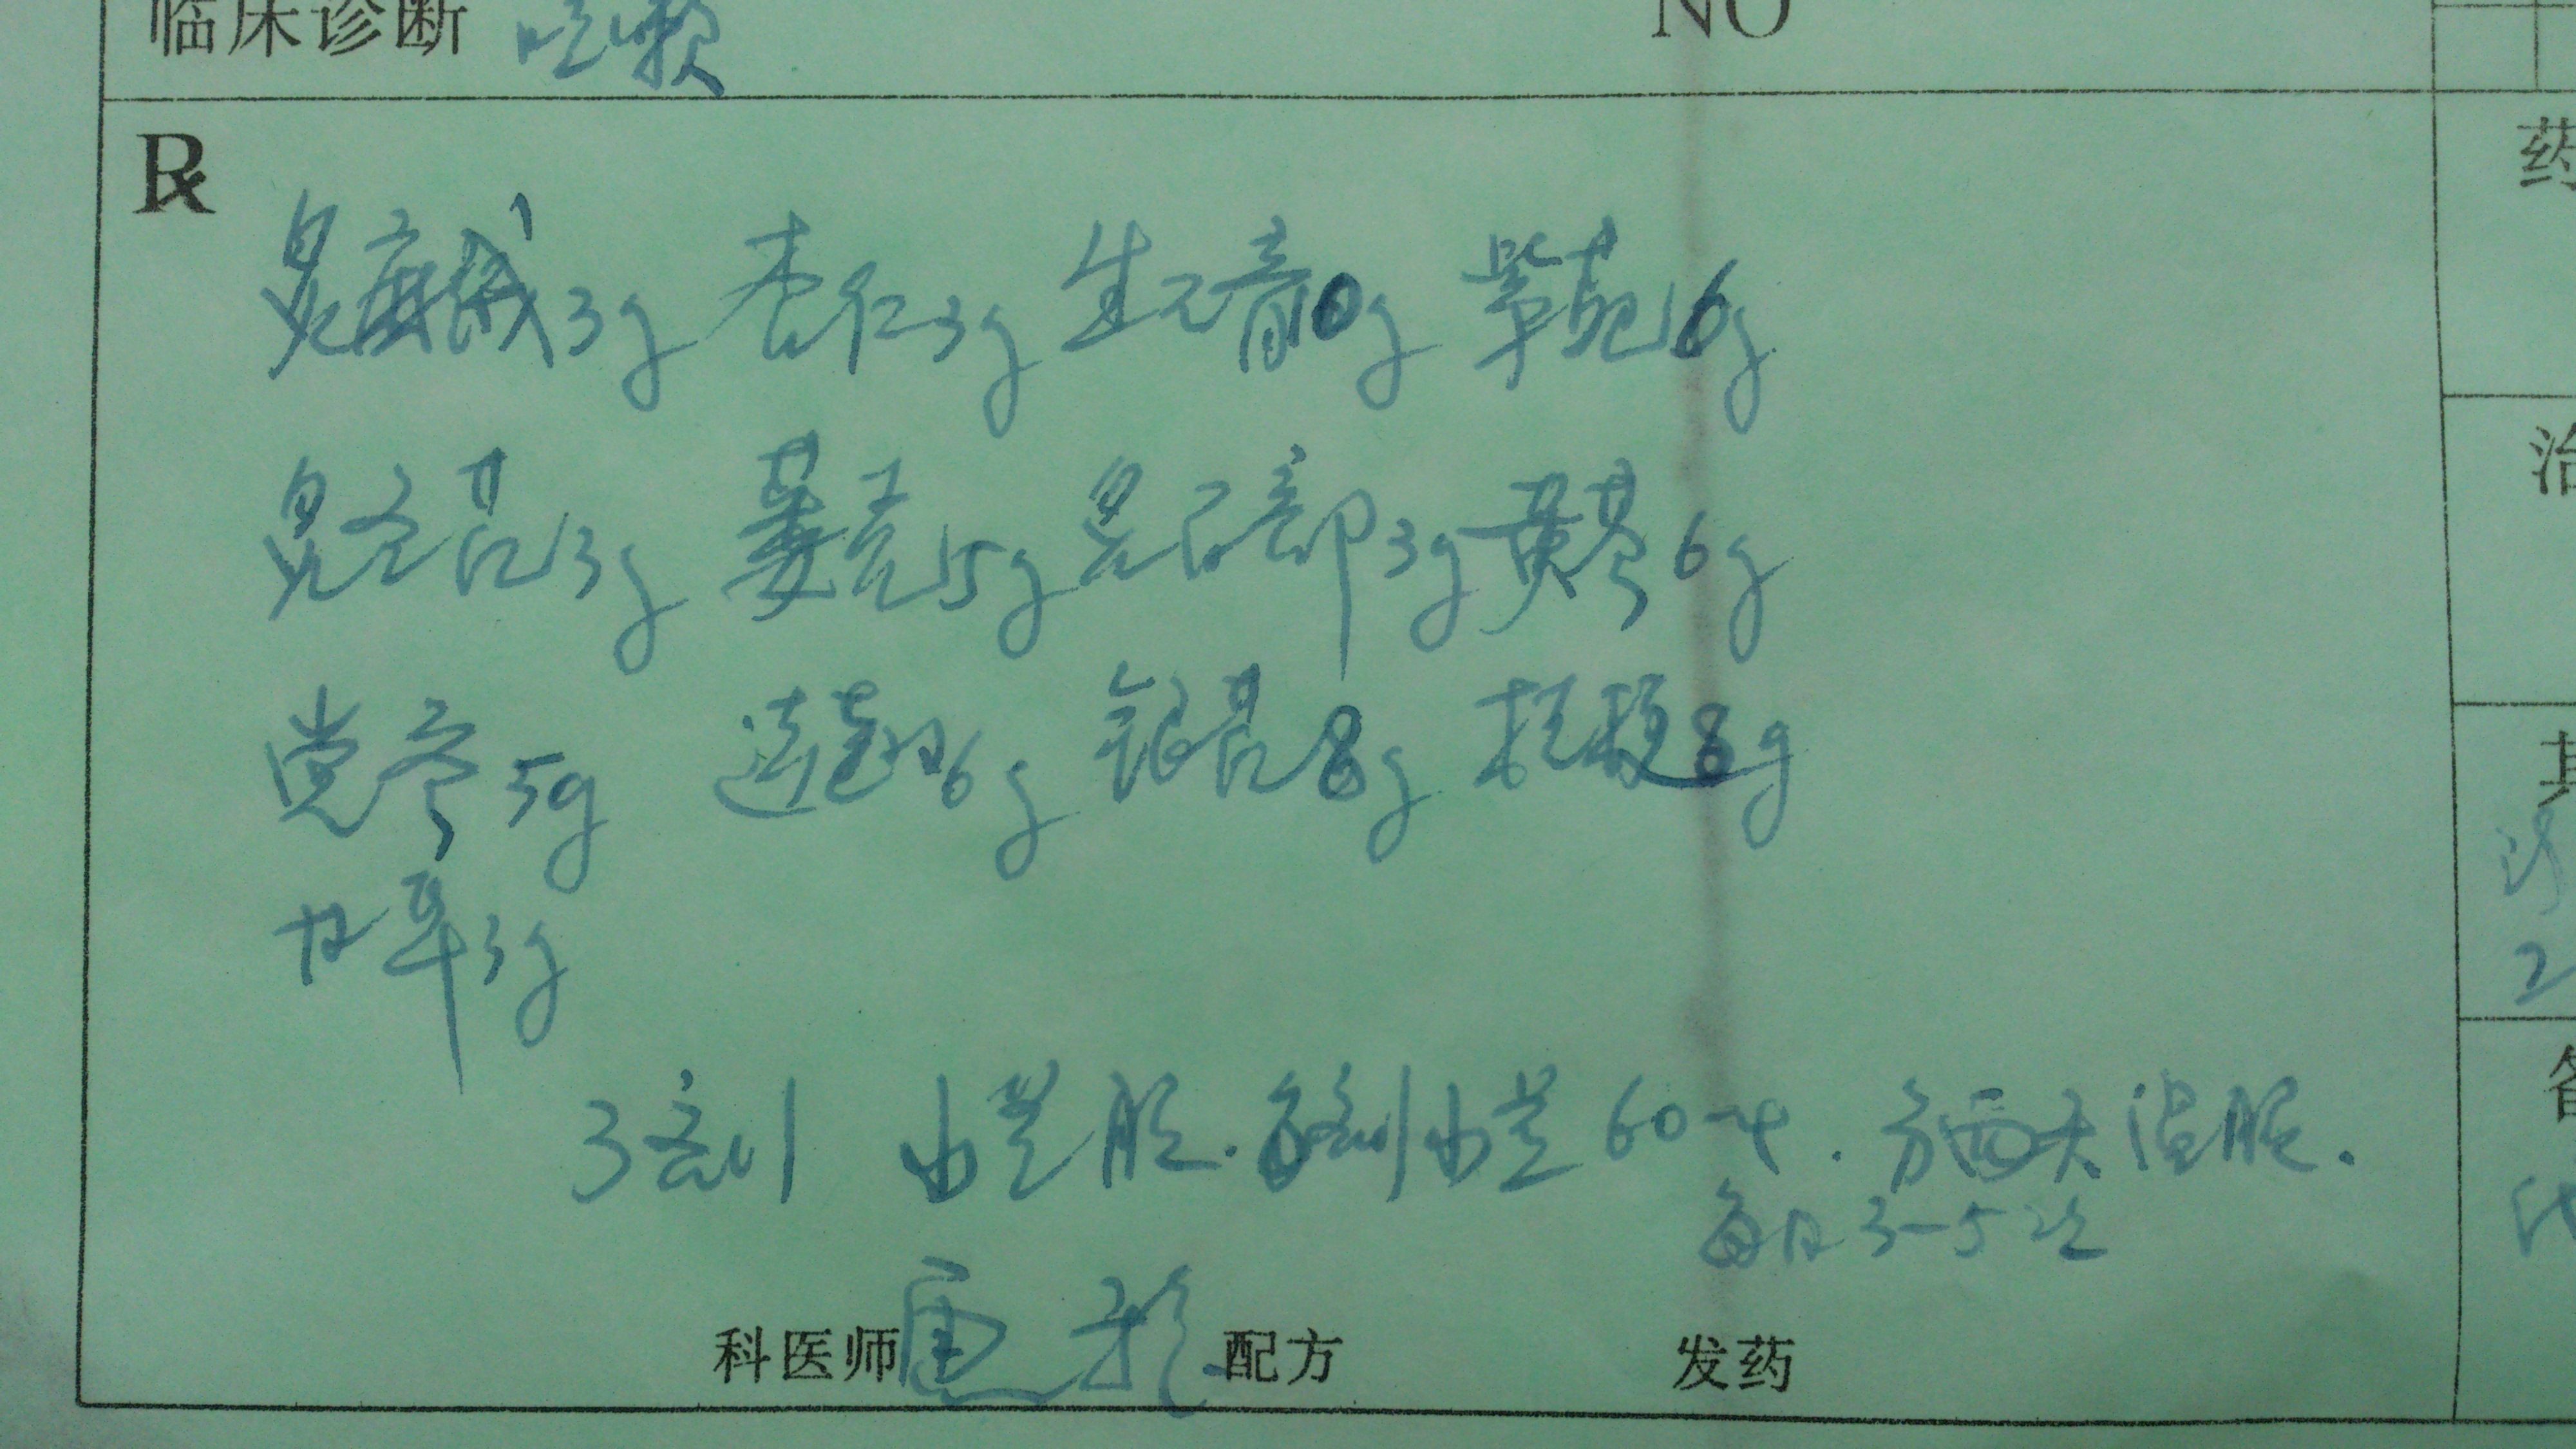 临床诊断 咳嗽 NO
药
炙麻绒3g 杏仁3g 生石膏10g 紫菀6g
炙冬花3g 蒌壳5g 炙百部3g 黄芩6g
治
党参5g 连翘6g 银花8g 桔梗8g
其
甘草3g
2
3剂 水煎服.每剂水煎60 分两天温服.
每日3-5次
科医师 配方 发药